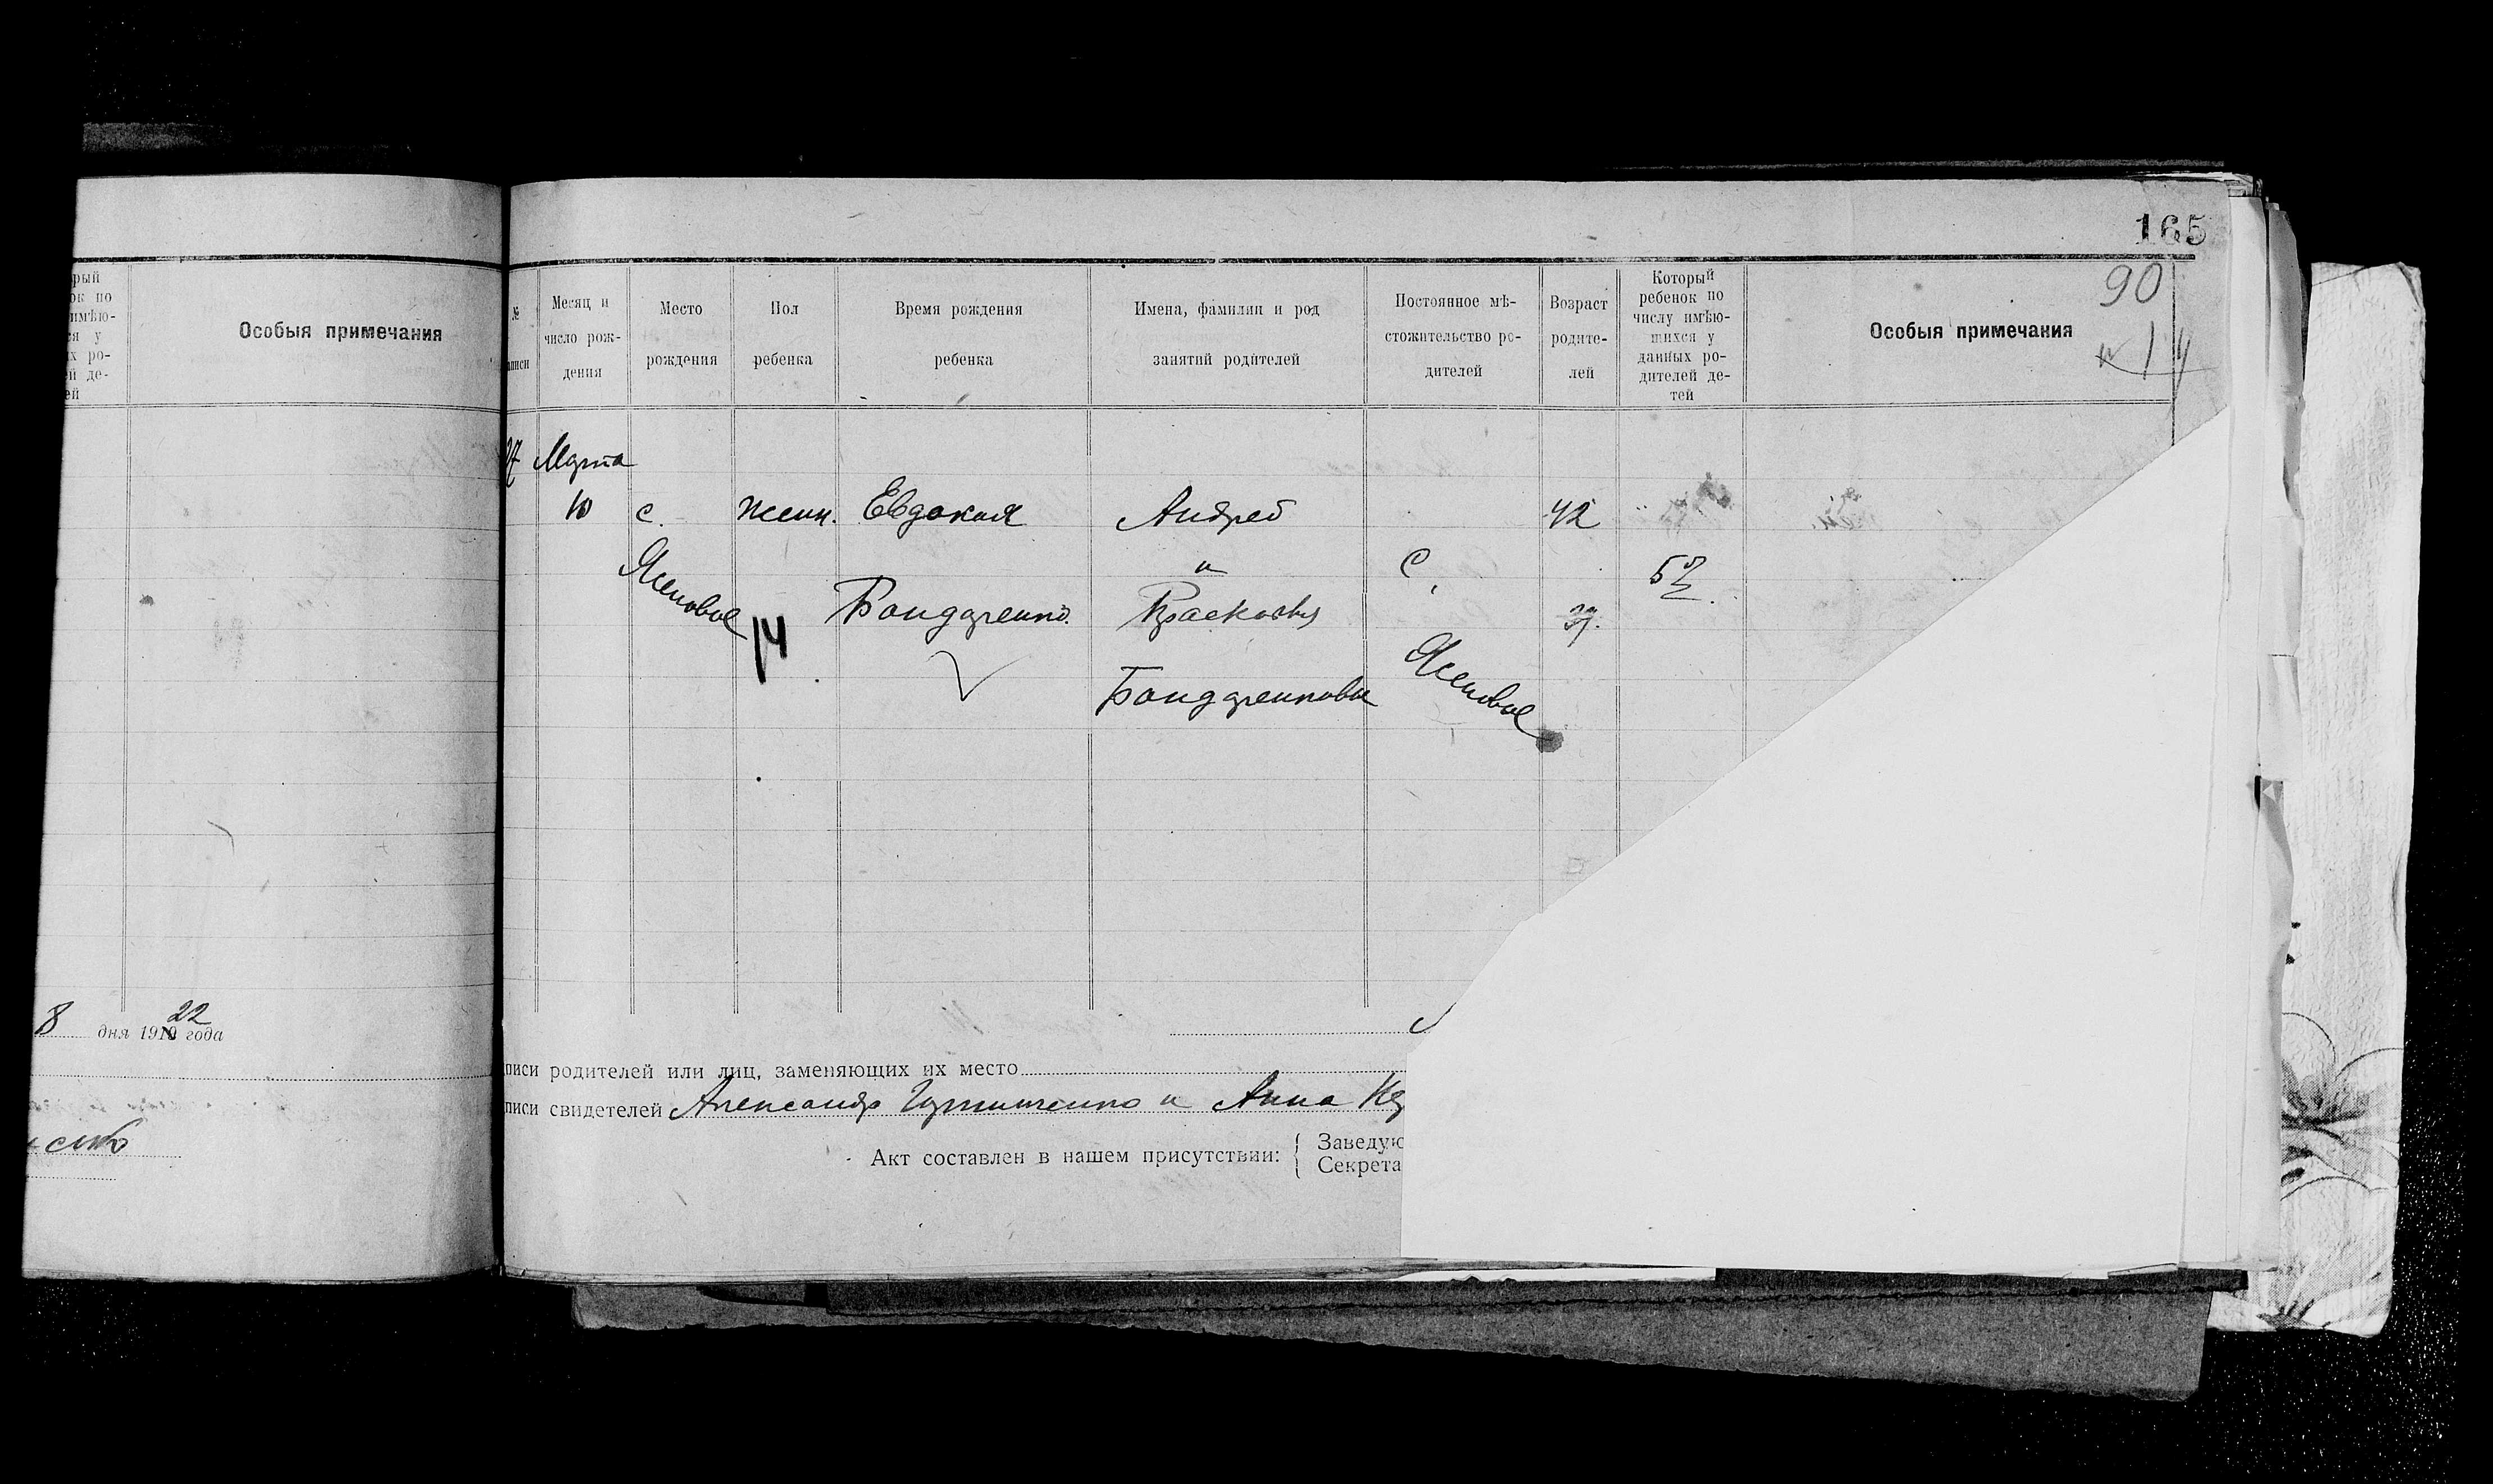 165
90
14
рый
ок по
имѣю-
ся у
х ро-
ей де-
ей
Особыя примечания
8 дня 1919 22 года
№
аписи
Месяц и
число рож-
дения
Место
рождения
Пол
ребенка
Время рождения
ребенка
Имена, фамилии и род
занятий родителей
Постоянное мѣ-
стожительство ро-
дителей
Возраст
родите-
лей
Который
ребенок по
числу имѣю-
щихся у
данных ро-
дителей де-
тей
Особыя примечания
Марта
10 с. женн. Евдокия Андрей 42
и с.
Ясеновое Бондаренко Прасковья 37.
14
Бондаренковы Ясеновое
писи родителей или лиц, заменяющих их место
писи свидетелей Александр и Анна
Акт составлен в нашем присутствии: { Заведую
Секрета